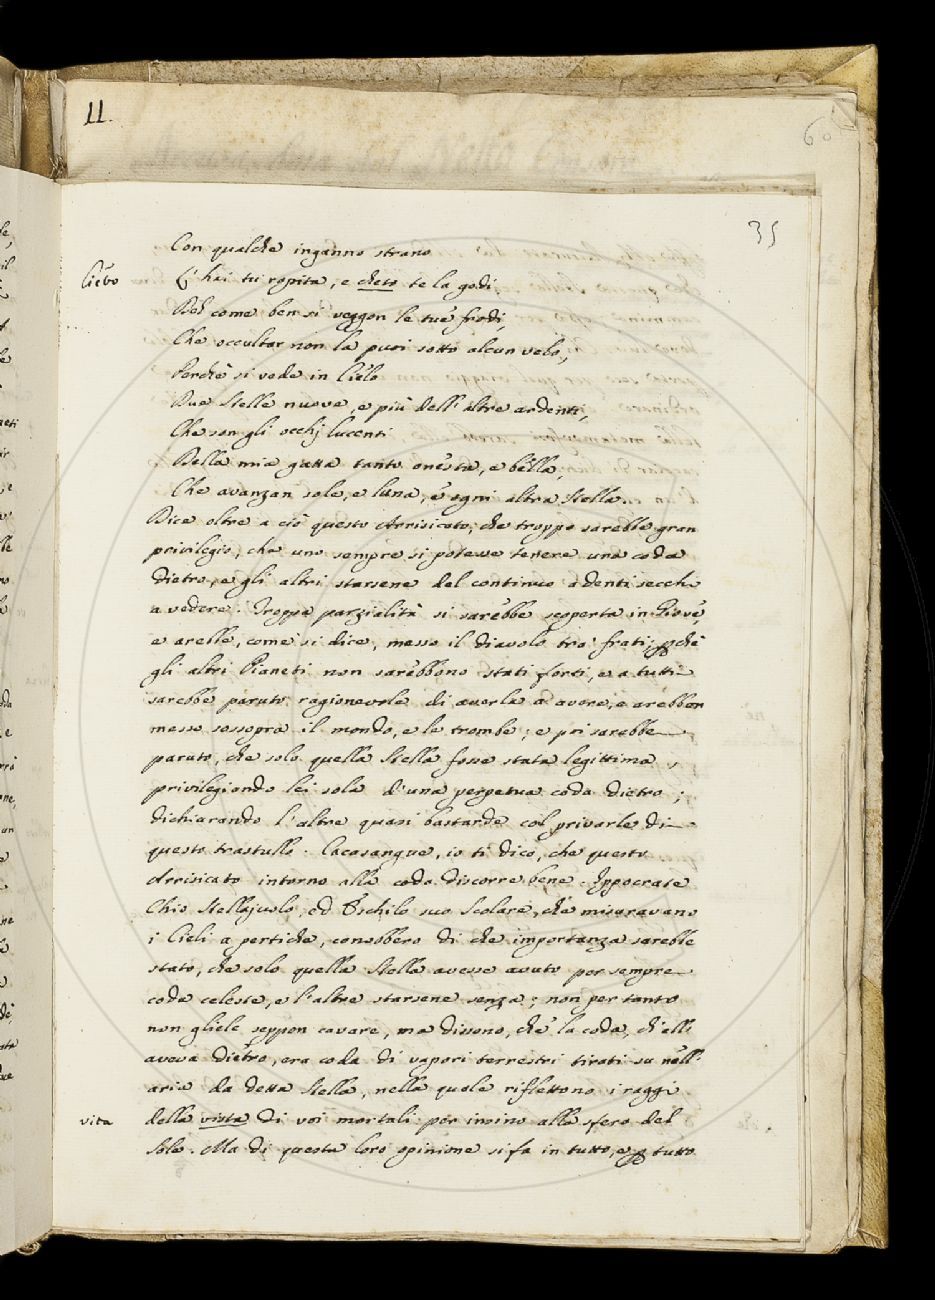 11.
60
35
Con qualche inganno strano
Cievo
E' hai tu rapita, e cheto te la godi,
Deh come ben si veggon le tue frodi,
Che occultar non la puoi sotto alcun velo,
Perchè si vede in Cielo
Due Stelle nuove, e più dell' altre ardenti,
Che son gli occhj lucenti
Della mia gatta tanto onesta, e bella,
Che avanzan sole, e luna, e ogni altra Stella.
Dice oltre a ciò questo Arrisicato, che troppo sarebbe gran
privilegio, che uno sempre si potesse tenere una coda
dietro, e gli altri starsene del continuo a denti secchi
a vedere. Troppa parzialità si sarebbe scoperta in Giove,
e arebbe, come si dice, messo il diavolo tra' frati, pchè
gli altri Pianeti non sarebbono stati forti, e a tutti
sarebbe paruto ragionevole di averla a avere, e arebbon
messo sossopra il mondo, e le trombe; e poi sarebbe
paruto, che solo quella Stella fosse stata legittima,
privilegiando lei sola d'una perpetua coda dietro;
dichiarando l'altre quasi bastarde col privarle di
questo trastullo. Cacasangue, io ti dico, che questo
Arrisicato intorno alla coda discorre bene. Ippocrate
Chio Stellajuolo, ed Eschilo suo Scolare, che misuravano
i Cieli a pertiche, conobbero di che importanza sarebbe
stato, che solo quella Stella avesse avuto per sempre
coda celeste, e l'altre starsene senza; non per tanto
non gliele seppon cavare, ma dissono, che la coda, ch'ella
aveva dietro, era coda di vapori terrestri tirati su nell'
aria da detta Stella, nella quale riflettono i raggi
vita
della vista di voi mortali per insino alla sfera del
Sole. Ma di questa loro opinione si fa in tutto, e p tutto